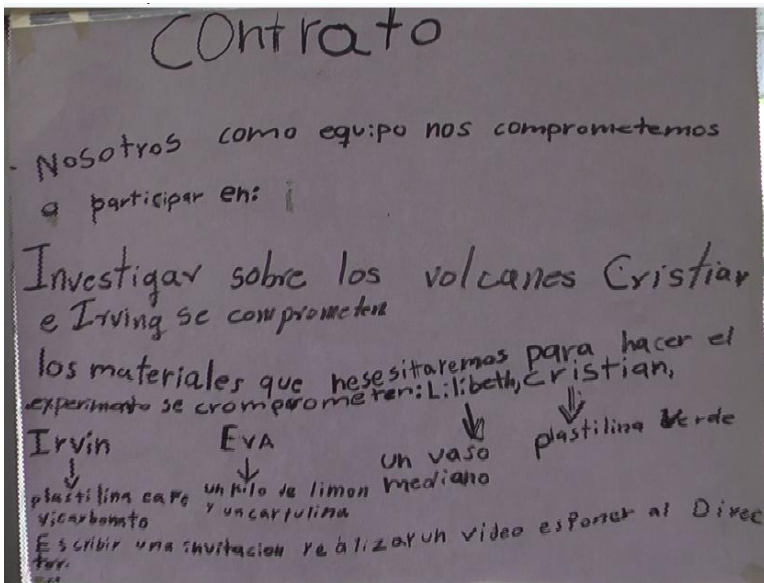 Contrato
- Nosotros como equipo nos comprometemos
a participar en:
Investigar sobre los volcanes Cristian
e Irving se comprometen
los materiales que nesesitaremos para hacer el
experimento se cromprometen: Lilibeth, cristian,
Irvin EvA un vaso mediano plastilina verde
plastilina cafe un kilo de limon
vicarbonato y un cartulina
Escribir una invitacion realizar un video esponer al Direc
tor.